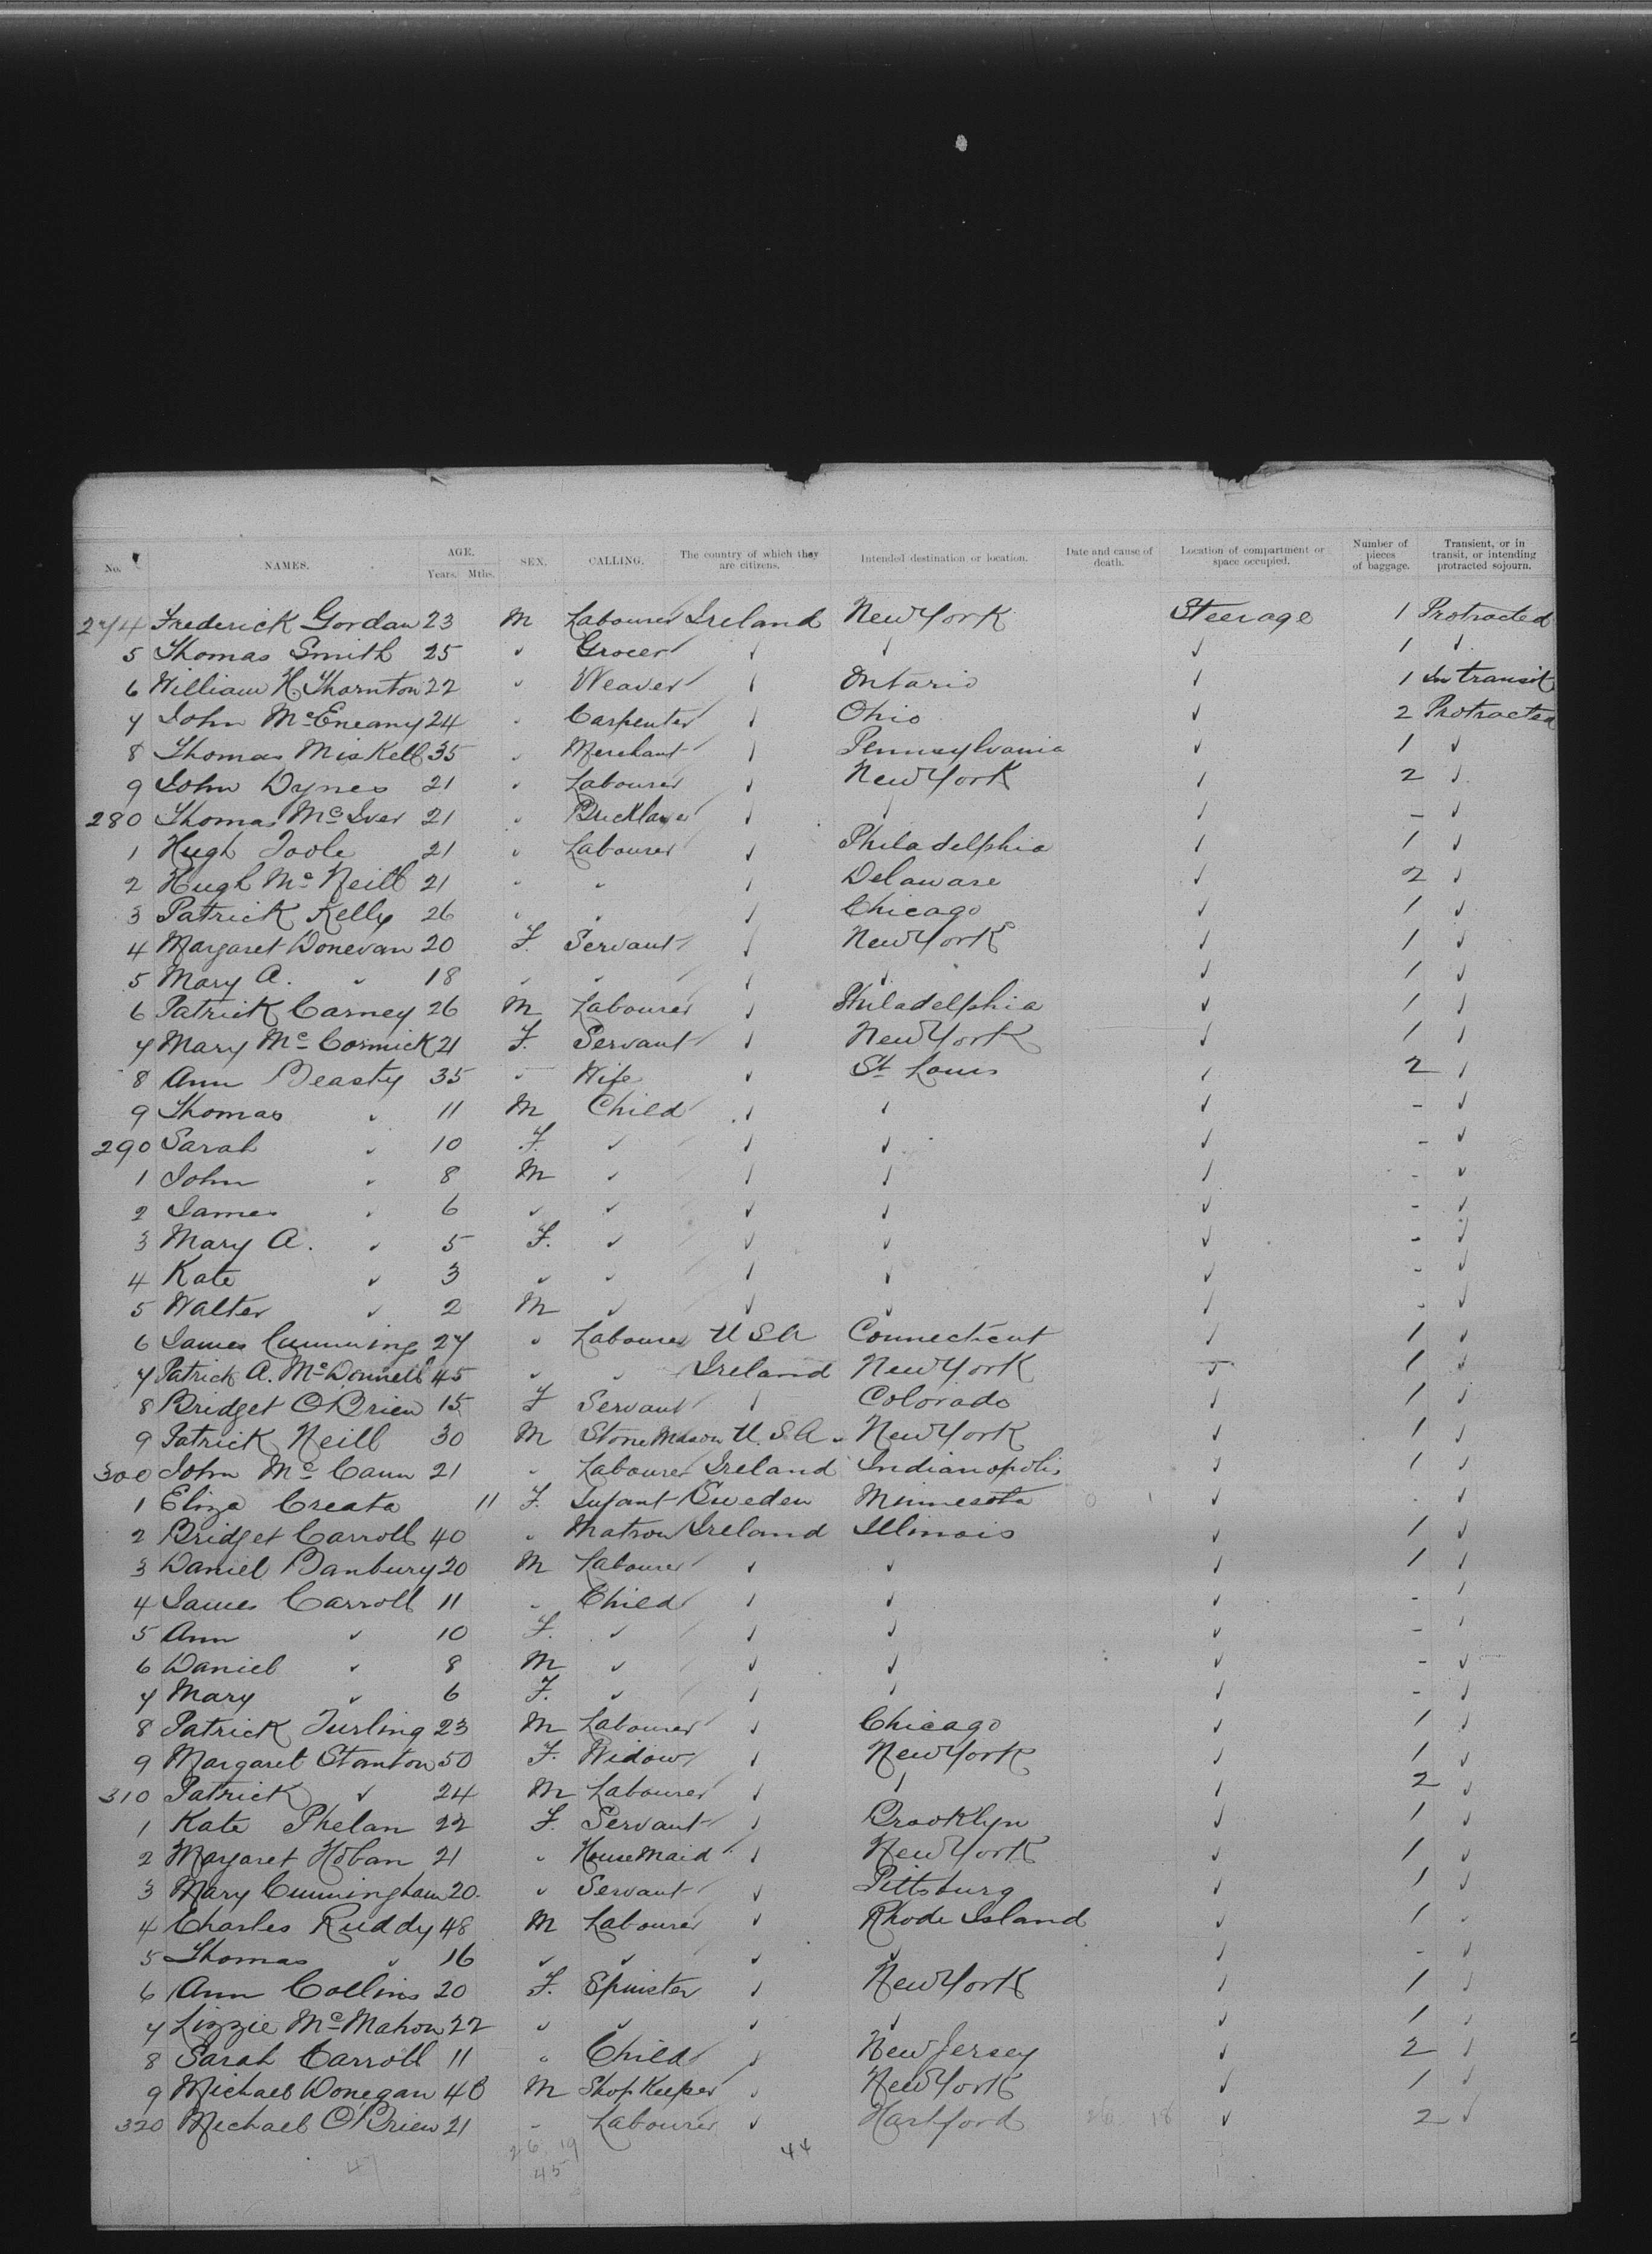 No. NAMES. AGE. Years. Mths. SEX. CALLING. The country of which they are citizens. Intended destination or location. Date and cause of death. Location of compartment or space occupied. Number of pieces of baggage. Transient, or in transit, or intending protracted sojourn.
274 Frederick Gordan 23 M Labourer Ireland New York Steerage 1 Protracted
5 Thomas Smith 25 " Grocer " " " 1 "
6 William H Thornton 22 " Weaver " Ontario " 1 In transit
7 John McEneany 24 " Carpenter " Ohio " 2 Protracted
8 Thomas Miskell 35 " Merchant " Pennsylvania " 1 "
9 John Dynes 21 " Labourer " New York " 2 "
280 Thomas McIver 21 " Bricklayer " " " - "
1 Hugh Toole 21 " Labourer " Philadelphia " 1 "
2 Hugh McNeill 21 " " " Delaware " 2 "
3 Patrick Kelly 26 " " " Chicago " 1 "
4 Margaret Donevan 20 F. Servant " New York " 1 "
5 Mary A. " 18 " " " " " 1 "
6 Patrick Carney 26 M Labourer " Philadelphia " 1 "
7 Mary McCormick 21 F. Servant " New York " 1 "
8 Ann Beasty 35 " Wife " St Louis " 2 "
9 Thomas " 11 M Child " " " - "
290 Sarah " 10 F. " " " " - "
1 John " 8 M " " " " - "
2 James " 6 " " " " " - "
3 Mary A. " 5 F. " " " " - "
4 Kate " 3 " " " " " - "
5 Walter " 2 M " " " " - "
6 James Cumming 27 " Labourer U S A Connecticut " 1 "
7 Patrick A. McDonnell 45 " " Ireland New York " 1 "
8 Bridget O'Brien 15 F Servant " Colorado " 1 "
9 Patrick Neill 30 M Stone Mason U.S.A. New York " 1 "
300 John McCann 21 " Labourer Ireland Indianopolis " 1 "
1 Eliza Creata 11 F. Infant Sweden Minnesota 0 1 " - "
2 Bridget Carroll 40 " Matron Ireland Illinois " 1 "
3 Daniel Banbury 20 M Labourer " " " 1 "
4 James Carroll 11 " Child " " " - "
5 Ann " 10 F. " " " " - "
6 Daniel " 8 M " " " " - "
7 Mary " 6 F. " " " " - "
8 Patrick Turling 23 M Labourer " Chicago " 1 "
9 Margaret Stanton 50 F. Widow " New York " 1 "
310 Patrick " 24 M Labourer " " " 2 "
1 Kate Phelan 22 F. Servant " Brooklyn " 1 "
2 Margaret Hoban 21 " House Maid " New York " 1 "
3 Mary Cunningham 20 " Servant " Pittsburg " 1 "
4 Charles Ruddy 48 M Labourer " Rhode Island " 1 "
5 Thomas " 16 " " " " " - "
6 Ann Collins 20 F. Spinster " New York " 1 "
7 Lizzie McMahon 22 " " " " " 1 "
8 Sarah Carroll 11 " Child " New Jersey " 2 "
9 Michael Donegan 40 M Shop Keeper " New York " 1 "
320 Michael O'Brien 21 " Labourer " Hartford 26 18 " 2 "
26 19 44
47 45